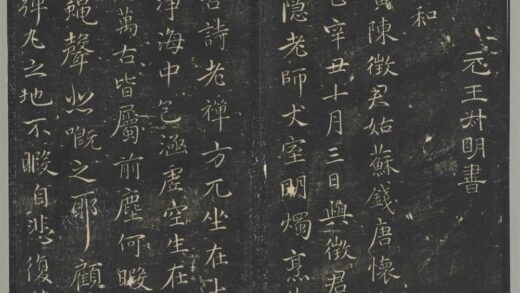 元王叔明書
和
陳徵君姑蘇錢唐懷
辛丑十月三日與徵君
隱老師丈室明燭烹
詩老禪方兀坐在
淨海中包涵虛空生在
萬古皆屬前塵何暇
聲悲嘅之耶顧
彈丸之地不暇自悲復